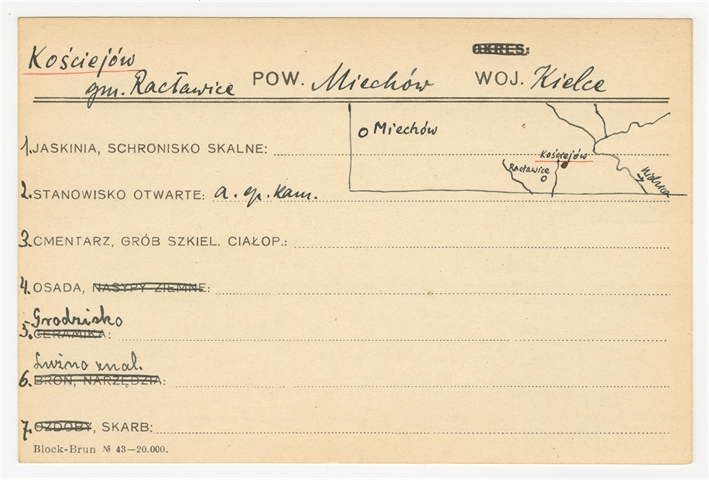 OKRES:
Kościejów
gm. Racławice POW. Miechów WOJ. Kielce
Miechów
Kościejów
Racławice
Nidzica
1. JASKINIA, SCHRONISKO SKALNE:
2. STANOWISKO OTWARTE: a. ep. kam.
3. CMENTARZ, GRÓB SZKIEL. CIAŁOP.:
4. OSADA, NASYPY ZIEMNE:
Grodzisko
5. CERAMIKA:
Luźno znal.
6. BROŃ, NARZĘDZIA:
7. OZDOBY, SKARB:
Block-Brun № 43-20.000.